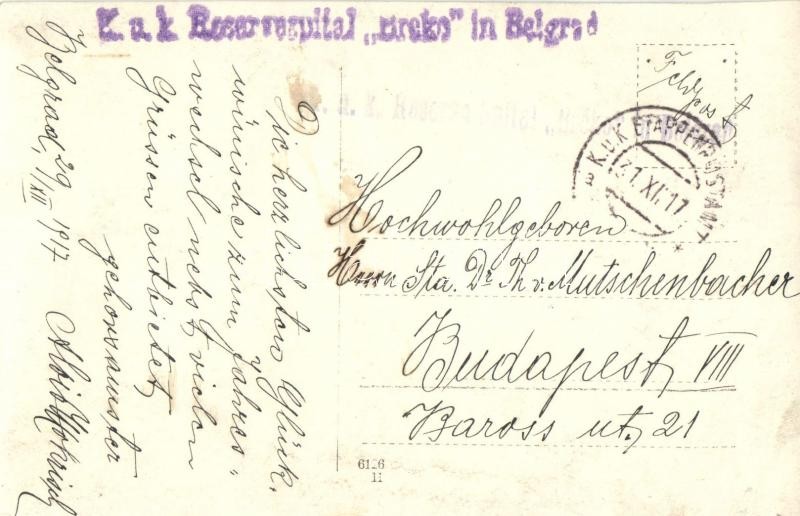 K. u. k. Reservespital „Brcko" in Belgrad
Feldpost
K.u.K. ETAPPENPOSTAMT
31.XII.17
Die herzlichsten Glück-
wünsche zum Jahres-
wechsel nebst vielen
Grüssen entbietet
gehorsamster
Belgrad, 29/XII 1917
Hochwohlgeboren
Herrn Sta. Dr. Th. v. Mutschenbacher
Budapest, VIII
Baross ut, 21
6126
11